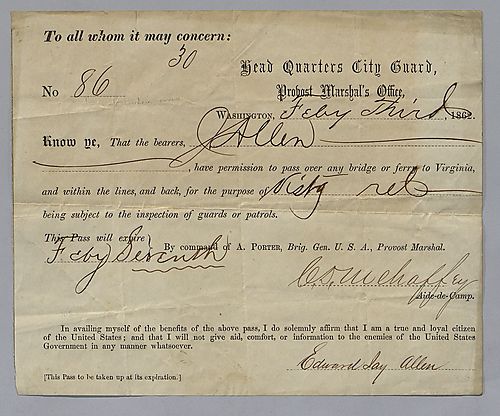 To all whom it may concern:
30
Head Quarters City Guard,
No 86
Provost Marshal's Office,
Washington, Feby Third, 1862.
Know ye, That the bearers, J Allen
, have permission to pass over any bridge or ferry to Virginia,
and within the lines, and back, for the purpose of Visitg
being subject to the inspection of guards or patrols.
This Pass will expire
Feby Seventh } By command of A. PORTER, Brig. Gen. U. S. A., Provost Marshal.
Aide-de-Camp.
In availing myself of the benefits of the above pass, I do solemnly affirm that I am a true and loyal citizen
of the United States; and that I will not give aid, comfort, or information to the enemies of the United States
Government in any manner whatsoever.
Edward Jay Allen
[This Pass to be taken up at its expiration.]